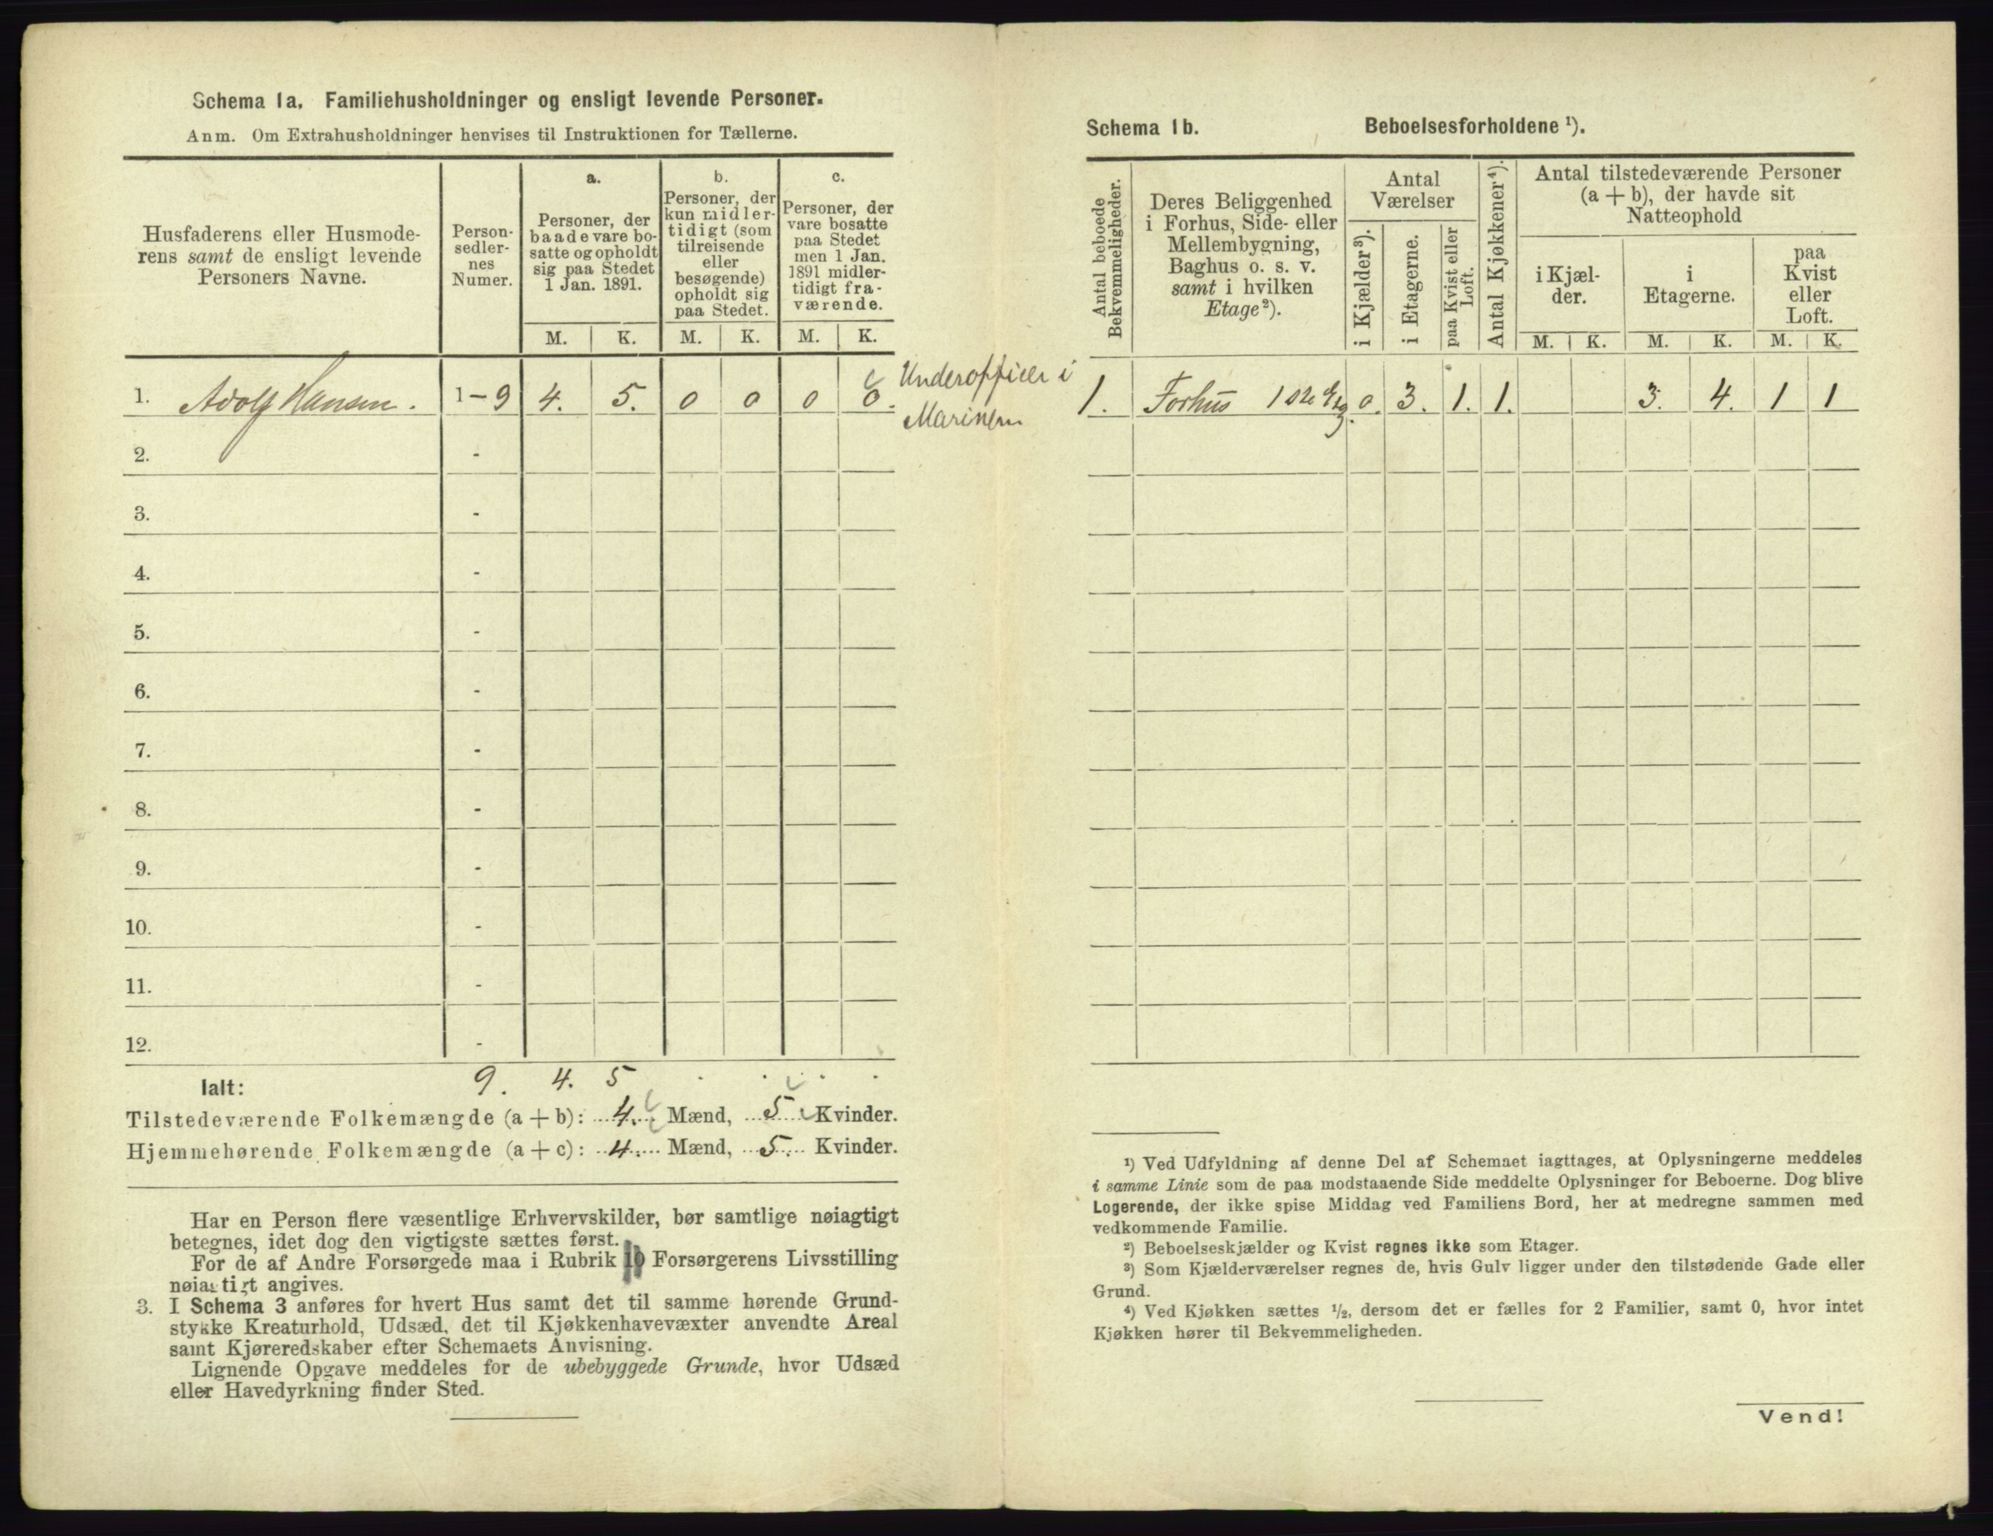 Schema 1a. Familiehusholdninger og ensligt levende Personer.
Anm. Om Extrahusholdninger henvises til Instruktionen for Tællerne.
Husfaderens eller Husmode-
rens samt de ensligt levende
Personers Navne.
Person-
sedler-
nes
Numer.
a.
Personer, der
baade vare bo-
satte og opholdt
sig paa Stedet
1 Jan. 1891.
b.
Personer, der
kun midler-
tidigt (som
tilreisende
eller
besøgende)
opholdt sig
paa Stedet.
c.
Personer, der
vare bosatte
paa Stedet
men 1 Jan.
1891 midler-
tidigt fra-
værende.
M. K. M. K. M. K.
1. Adolf Hansen. 1-9 4. 5. 0 0 0 0. Underofficer i
Marinen
2. -
3. -
4. -
5. -
6. -
7. -
8. -
9. -
10. -
11. -
12. -
Ialt: 9. 4. 5 . . . .
Tilstedeværende Folkemængde (a + b): 4. Mænd, 5 Kvinder.
Hjemmehørende Folkemængde (a + c): 4. Mænd, 5. Kvinder.
Har en Person flere væsentlige Erhvervskilder, bør samtlige nøiagtigt
betegnes, idet dog den vigtigste sættes først.
For de af Andre Forsørgede maa i Rubrik 10 Forsørgerens Livsstilling
nøiagtigt angives.
3. I Schema 3 anføres for hvert Hus samt det til samme hørende Grund-
stykke Kreaturhold, Udsæd, det til Kjøkkenhavevæxter anvendte Areal
samt Kjøreredskaber efter Schemaets Anvisning.
Lignende Opgave meddeles for de ubebyggede Grunde, hvor Udsæd
eller Havedyrkning finder Sted.
Schema 1b. Beboelsesforholdene ¹).
Antal beboede
Bekvemmeligheder.
Deres Beliggenhed
i Forhus, Side- eller
Mellembygning,
Baghus o. s. v.
samt i hvilken
Etage²).
Antal
Værelser
i Kjælder³).
i Etagerne.
paa Kvist eller
Loft.
Antal Kjøkkener⁴).
Antal tilstedeværende Personer
(a + b), der havde sit
Natteophold
i Kjæl-
der.
i
Etagerne.
paa
Kvist
eller
Loft.
M. K. M. K. M. K.
1. Forhus 1ste Etg. 0. 3. 1. 1. 3. 4. 1 1
¹) Ved Udfyldning af denne Del af Schemaet iagttages, at Oplysningerne meddeles
i samme Linie som de paa modstaaende Side meddelte Oplysninger for Beboerne. Dog blive
Logerende, der ikke spise Middag ved Familiens Bord, her at medregne sammen med
vedkommende Familie.
²) Beboelseskjælder og Kvist regnes ikke som Etager.
³) Som Kjælderværelser regnes de, hvis Gulv ligger under den tilstødende Gade eller
Grund.
⁴) Ved Kjøkken sættes ½, dersom det er fælles for 2 Familier, samt 0, hvor intet
Kjøkken hører til Bekvemmeligheden.
Vend!